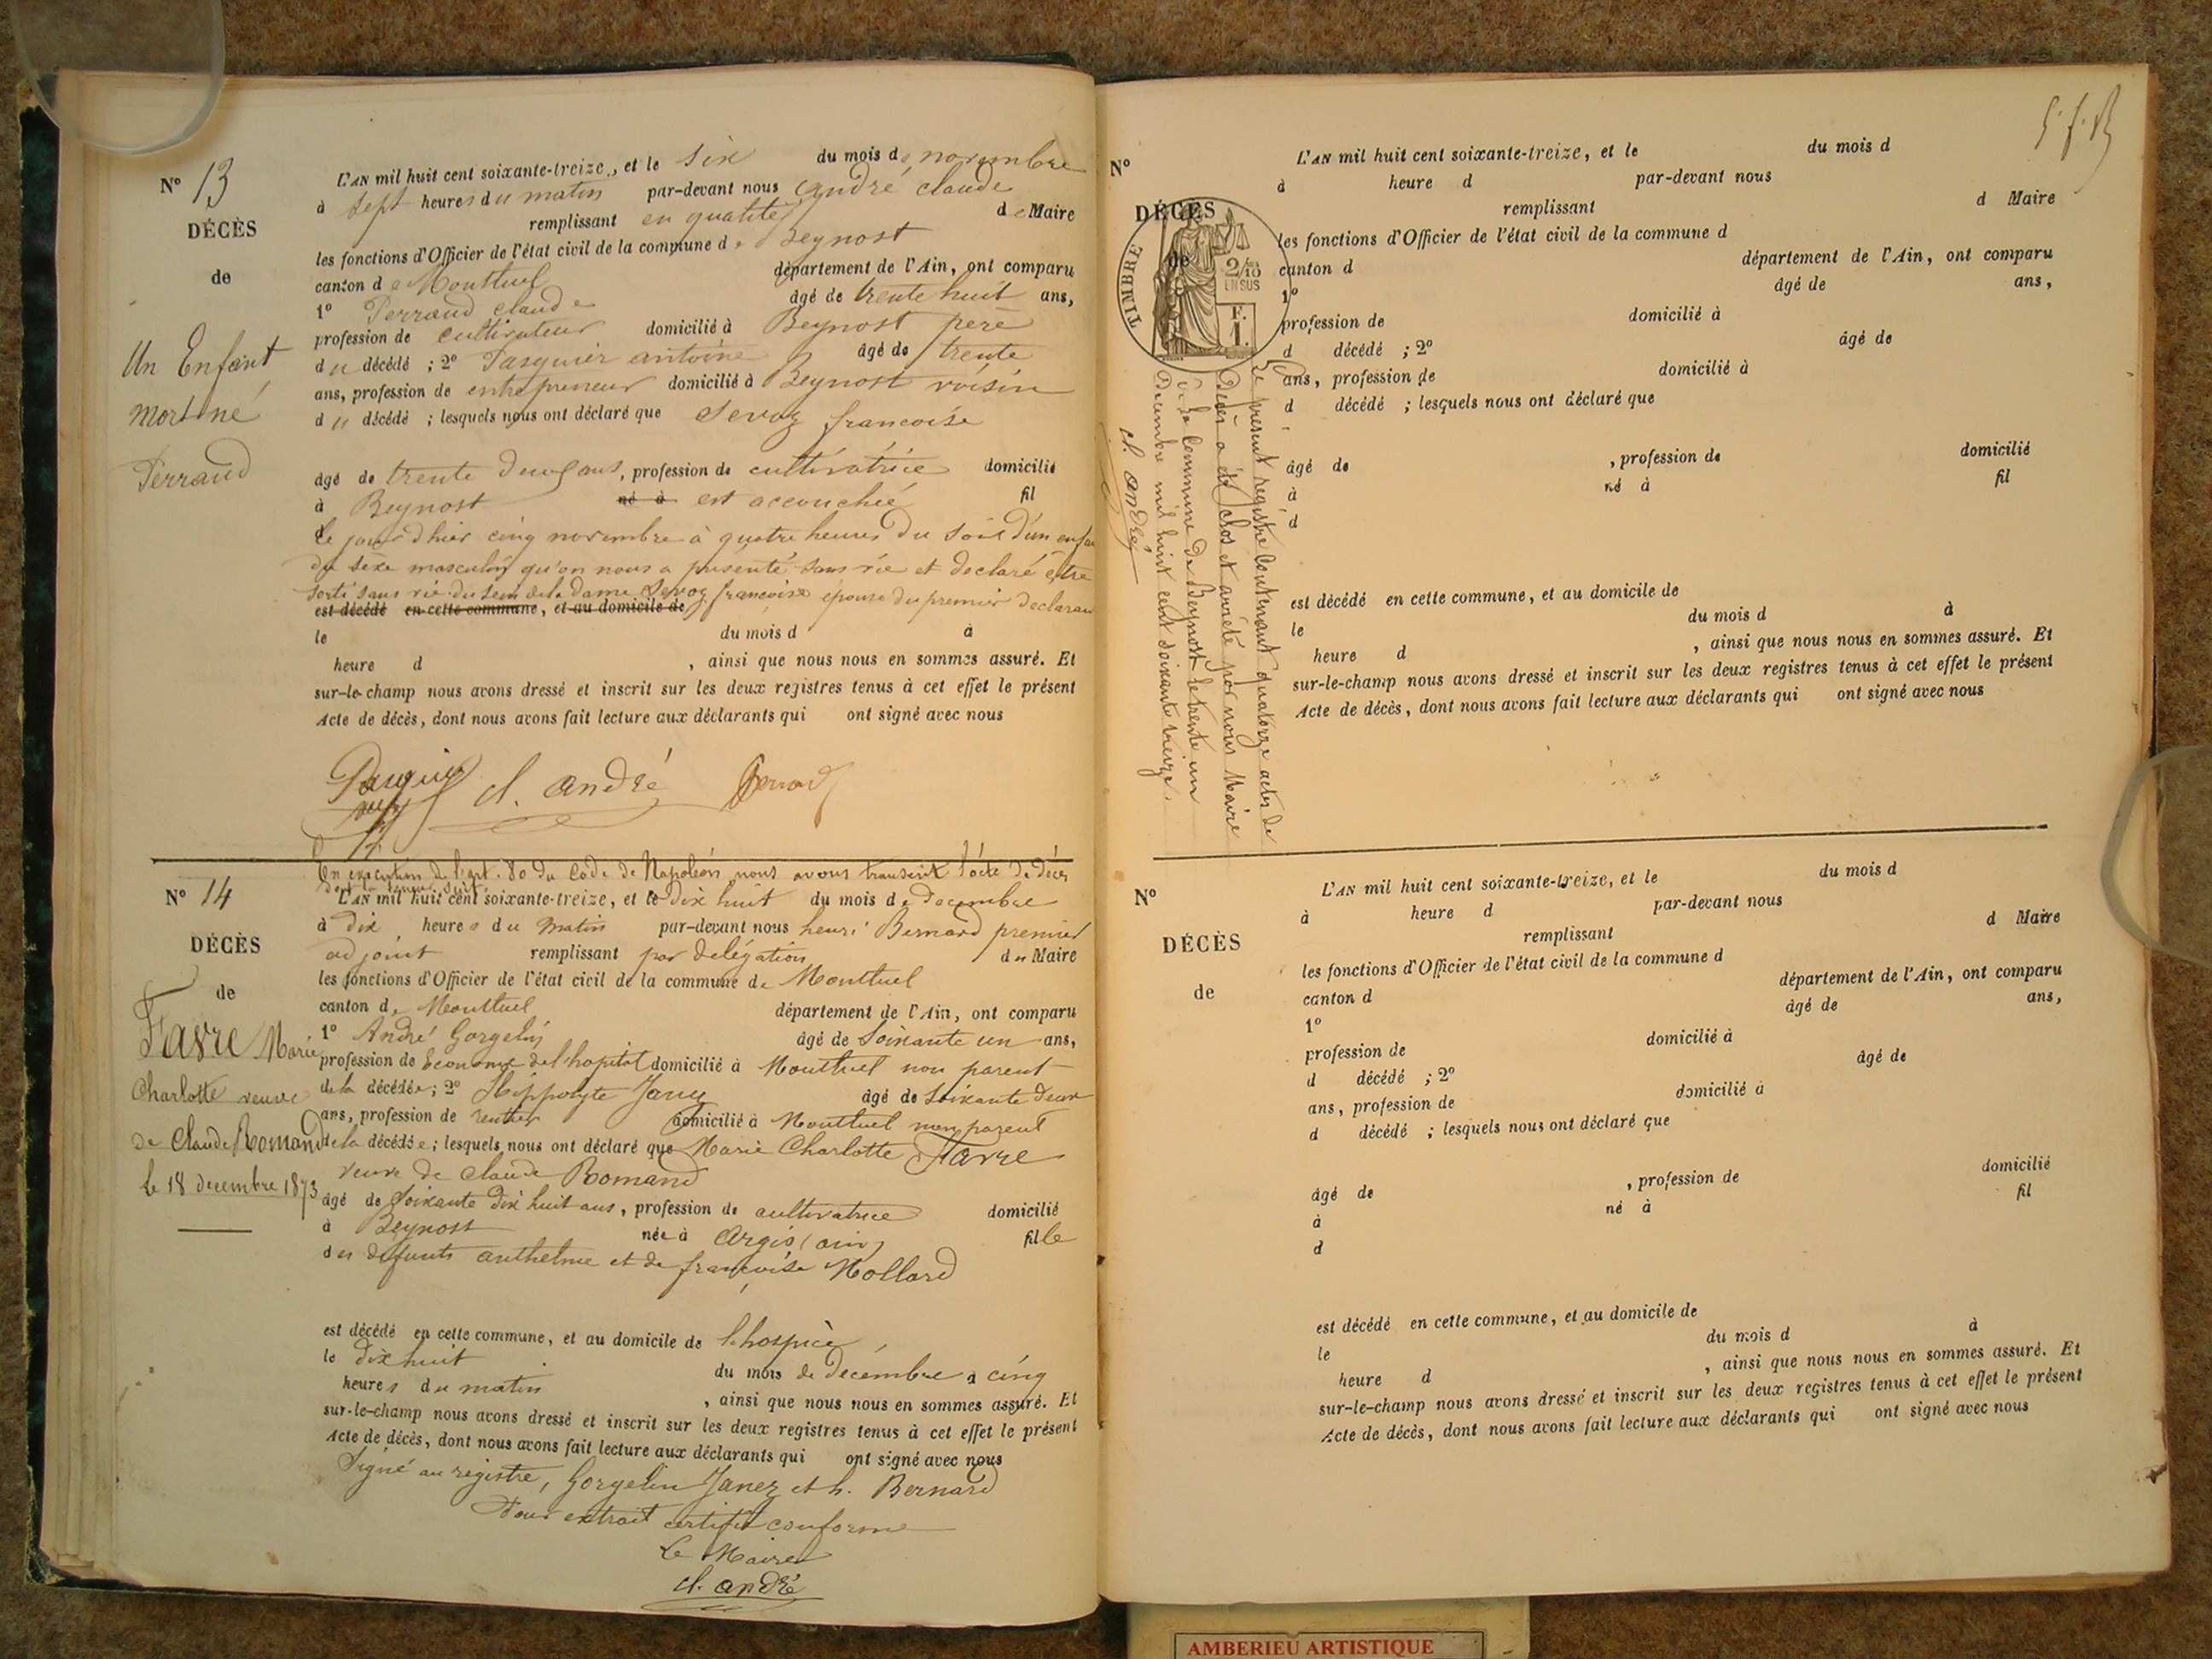 N° 13
DÉCÈS
de
Un Enfant
mort né
Perraud
L'AN mil huit cent soixante-treize, et le six du mois de novembre
à sept heures du matin par-devant nous André Claude
remplissant en qualité de Maire
les fonctions d'Officier de l'état civil de la commune de Beynost
canton de Montluel département de l'Ain, ont comparu
1° Perraud Claude âgé de trente huit ans,
profession de cultivateur domicilié à Beynost père
du décédé ; 2° Pasquier antoine âgé de trente
ans, profession de entrepreneur domicilié à Beynost voisin
du décédé ; lesquels nous ont déclaré que Servoz francoise
âgé de trente deux ans, profession de cultivatrice domicilié
à Beynost né à est accouchée fil
d
le jour d'hier cinq novembre à quatre heures du soir d'un enfan
du sèxe masculin qu'on nous a présenté sans vie et declaré être
sorti sans vie du sein de la dame Servoz francoise épouse du premier declaran
est décédé en cette commune, et au domicile de
le du mois d à
heure d , ainsi que nous nous en sommes assuré. Et
sur-le-champ nous avons dressé et inscrit sur les deux registres tenus à cet effet le présent
Acte de décès, dont nous avons fait lecture aux déclarants qui ont signé avec nous
Pasquier cl. andré Perraud
N° 14
DÉCÈS
de
Favre Marie
Charlotte veuve
de Claude Romand
le 18 decembre 1873
En execution de l'art. 80 du Code de Napoléon nous avons transcrit l'acte de décès
dont la teneur suit
L'AN mil huit cent soixante-treize, et le dix huit du mois de decembre
à dix heures du matin par-devant nous henri Bernard premier
adjoint remplissant par delégation du Maire
les fonctions d'Officier de l'état civil de la commune de Montluel
canton de Montluel département de l'Ain, ont comparu
1° André Gorgelin âgé de Soixante un ans,
profession de Econome de l'hopital domicilié à Montluel non parent
de la décédée ; 2° Hippolyte Janez âgé de soixante deux
ans, profession de rentier domicilié à Montluel non parent
de la décédée ; lesquels nous ont déclaré que Marie Charlotte Favre
veuve de Claude Romand
âgé de soixante dix huit ans, profession de cultivatrice domicilié
à Beynost née à Argis (ain) fille
des defunts anthelme et de françoise Mollard
est décédé en cette commune, et au domicile de l'hospice
le dix huit du mois de decembre à cinq
heures du matin , ainsi que nous nous en sommes assuré. Et
sur-le-champ nous avons dressé et inscrit sur les deux registres tenus à cet effet le présent
Acte de décès, dont nous avons fait lecture aux déclarants qui ont signé avec nous
Signé au registre, Gorgelin Janez et h. Bernard
Pour extrait certifié conforme
Le Maire
cl. andré
N°
DÉCÈS
de
TIMBRE
2/10
EN SUS
F.
1.
L'AN mil huit cent soixante-treize, et le du mois d
à heure d par-devant nous
remplissant d Maire
les fonctions d'Officier de l'état civil de la commune d
canton d département de l'Ain, ont comparu
1° âgé de ans,
profession de domicilié à
d décédé ; 2° âgé de
ans, profession de domicilié à
d décédé ; lesquels nous ont déclaré que
âgé de , profession de domicilié
à né à fil
d
est décédé en cette commune, et au domicile de
le du mois d à
heure d , ainsi que nous nous en sommes assuré. Et
sur-le-champ nous avons dressé et inscrit sur les deux registres tenus à cet effet le présent
Acte de décès, dont nous avons fait lecture aux déclarants qui ont signé avec nous
Le présent registre contenant quatorze actes de
Décès a été clos et arrété par nous Maire
de la Commune de Beynost le trente un
Decembre mil huit cent soixante treize.
cl. andré
N°
DÉCÈS
de
L'AN mil huit cent soixante-treize, et le du mois d
à heure d par-devant nous
remplissant d Maire
les fonctions d'Officier de l'état civil de la commune d
canton d département de l'Ain, ont comparu
1° âgé de ans,
profession de domicilié à
d décédé ; 2° âgé de
ans, profession de domicilié à
d décédé ; lesquels nous ont déclaré que
âgé de , profession de domicilié
à né à fil
d
est décédé en cette commune, et au domicile de
le du mois d à
heure d , ainsi que nous nous en sommes assuré. Et
sur-le-champ nous avons dressé et inscrit sur les deux registres tenus à cet effet le présent
Acte de décès, dont nous avons fait lecture aux déclarants qui ont signé avec nous
AMBERIEU ARTISTIQUE